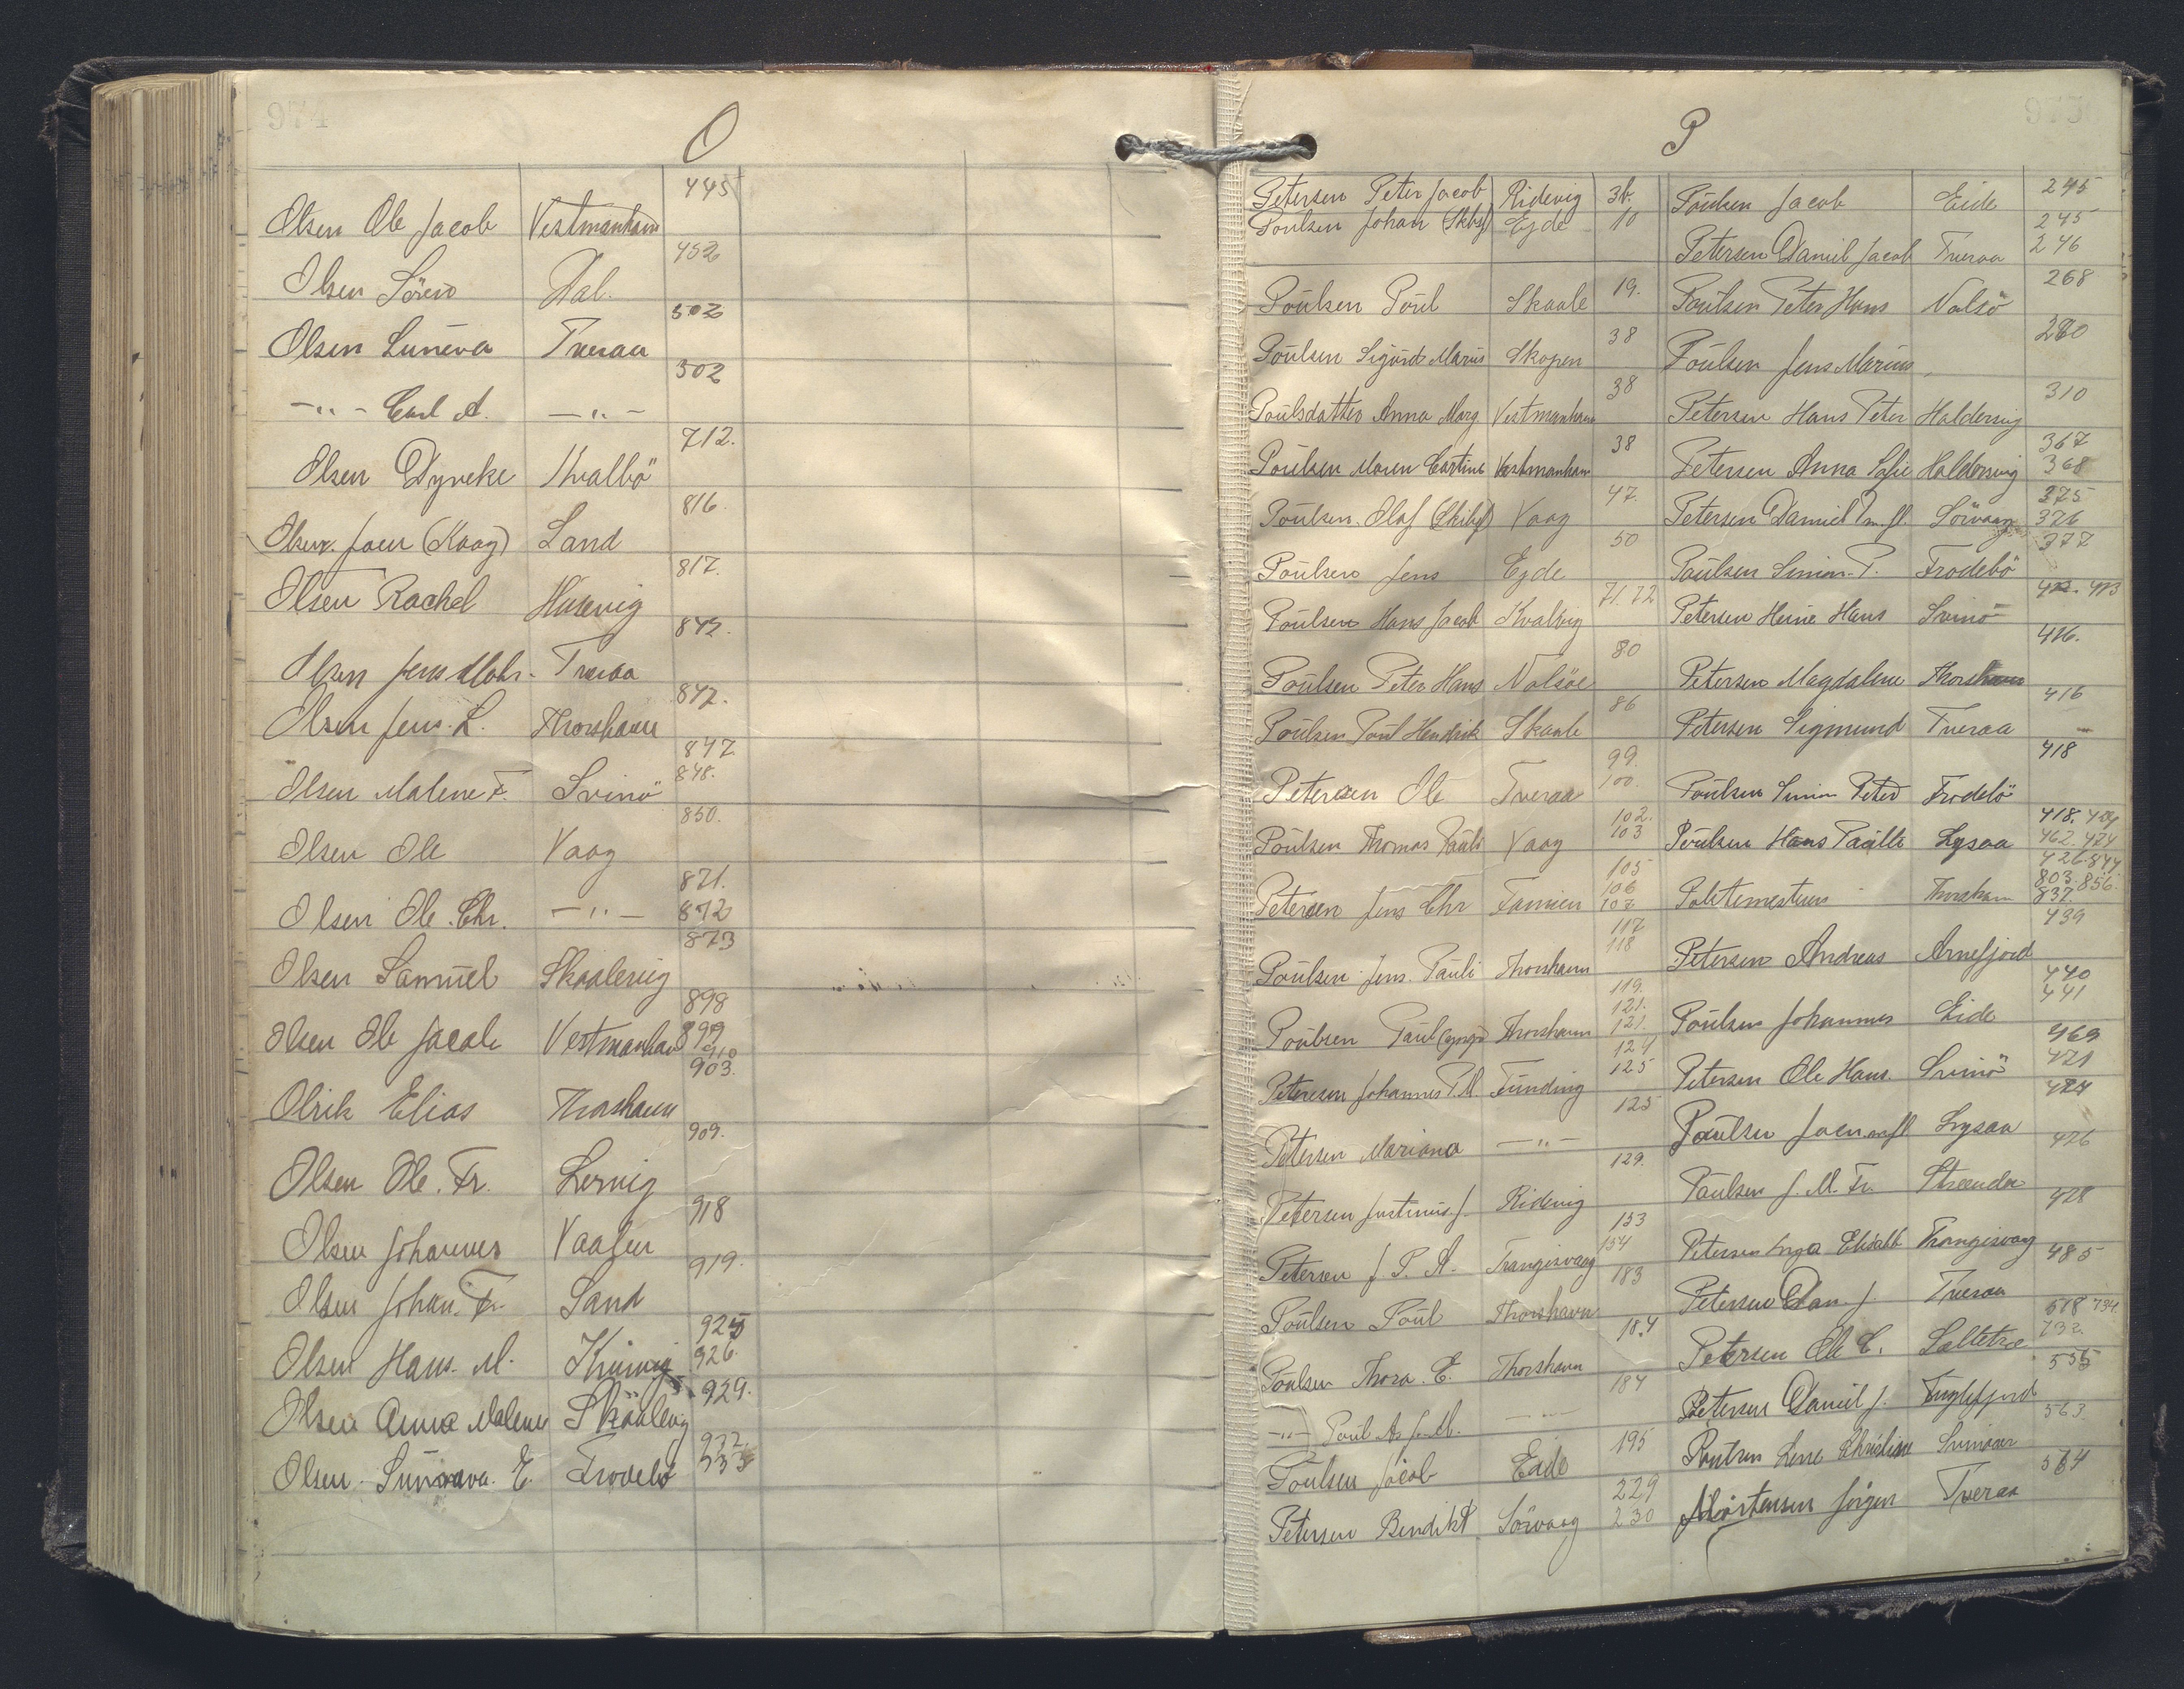 974
O
Olsen Ole Jacob Vestmanhavn 445
Olsen Sören Dal. 452
Olsen Suneva Tveraa 502
-"- Carl A. -"- 502
Olsen Dyveke Hvalbö 712.
Olsen Joen (Kaag) Sand 816.
Olsen Rachel Husevig 817.
Olsen Jens Mohr. Tveraa 842.
Olsen Jens. L. Thorshavn 842.
Olsen Malene F. Svinö 847 848.
Olsen Ole Vaag 850.
Olsen Ole. Chr. -"- 871. 872
Olsen Samuel Skaalevig 873
Olsen Ole Jacob Vestmanhav 898 899 910
Olrik Elias Thorshavn 903.
Olsen Ole. Fr. Lervig 909.
Olsen Johannes Vaagen 918
Olsen Johan. Fr. Sand 919.
Olsen Hans. M. 925 926.
Olsen Anna Malene Skaalevig 929.
Olsen E. Frodebö 932 933
975
P
Petersen Peter Jacob Ridevig
Poulsen Johan (Skbsf) Ejde 10
Poulsen Poul Skaale 19.
Poulsen Sigurd Marius Skopen 38
Poulsdatter Anna Marg. Vestmanhavn 38
Poulsen Maren Cartine Vestmanhavn 38
Poulsen. Olaf (Skibsf) Vaag 47.
Poulsen Jens Ejde 50
Poulsen Hans Jacob Kvalvig 71. 72
Poulsen Peter Hans Nolsöe 80
Poulsen Poul Hendrik Skaale 86
Petersen Ole Tveraa 99. 100.
Poulsen Thomas Pauli Vaag 102. 103
Petersen Jens Chr Famien 105 106 107
Poulsen Jens. Pauli Thorshavn 117 118
Poulsen Paul Thorshavn 119. 121. 121.
Petersen Johannes P. M. Funding 124 125
Petersen Mariana -"- 125
Petersen Justinus J. Ridevig 129.
Petersen J. P. A. Trangisvaag 153 154
Poulsen Poul Thorshavn 183
Poulsen Thora. E. Thorshavn 184
-"- Poul A. J. M. -"- 184
Poulsen Jacob Eide 195
Petersen Bendikt Sörvaag 229 230
Poulsen Jacob Eide 245
Petersen Daniel Jacob Tveraa 245 246
Poulsen Peter Hans Nolsö 268
Poulsen Jens Marius 280
Petersen Hans Peter Haldersvig 310
Petersen Anna Sofie Haldersvig 367 368
Petersen Daniel P. m. fl. Sörvaag 375 376
Poulsen Simon. P. Frodebö 377
Petersen Heine Hans Svinö 412. 413
Petersen Magdalene Thorshavn 416.
Petersen Sigmund Tveraa 416
Poulsen Simon Peter Frodebö 418
Poulsen Hans Pauille Lysaa 418. 409
Politimesteren Thorshavn 462. 474 426. 844 803. 856. 837.
Petersen Andreas Arnefjord 439
Poulsen Johannes Eide 440 441
Petersen Ole Hans. Svinö 469 471
Poulsen Joen. m. fl. Lysaa 474
Poulsen J. M. Fr. Streender 476
Petersen Inga Elisabeth Trangisvaag 478
Petersen Dan. J. Tveraa 485
Petersen Ole C. Selletræ 518 734 732.
Petersen Daniel J. Fuglefjord 555
Poulsen Lene Christine Svinaaer 563.
Mortensen Jörgen Tveraa 564